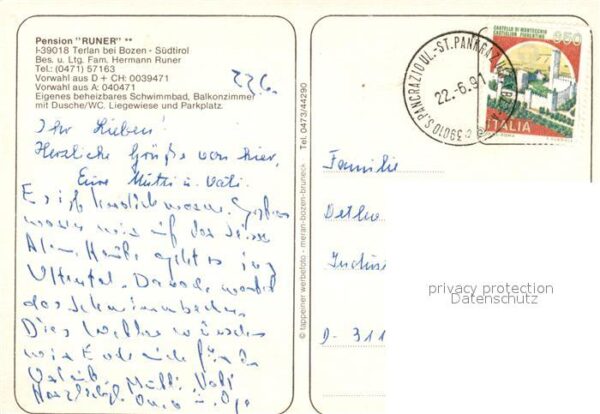 Pension "RUNER" **
I-39018 Terlan bei Bozen - Südtirol
Bes. u. Ltg. Fam. Hermann Runer
Tel.: (0471) 57163
Vorwahl aus D + CH: 0039471
Vorwahl aus A: 040471
Eigenes beheizbares Schwimmbad, Balkonzimmer
mit Dusche/WC. Liegewiese und Parkplatz.
22.6.
Ihr Lieben!
Herzliche Grüße von hier,
Eure Mutti u. Vati.
Es ist herrlich warm. Gestern
waren wir auf der Seiser
Alm. Heute geht es ins
Ultental. Danach wartet
das Schwimmbecken.
Dies Wetter wünschen
wir Euch auch für den
Urlaub. Mutti, Vati
Herzlichst Oma u. Opa
© tappeiner werbefoto - meran-bozen-bruneck Tel. 0473/44290
39010 S. PANCRAZIO UL. - ST. PANKRAZ
22.-6.91
CASTELLO DI MONTECCHIO
CASTIGLION FIORENTINO
650
ITALIA
Familie
Detle
D-311
privacy protection
Datenschutz